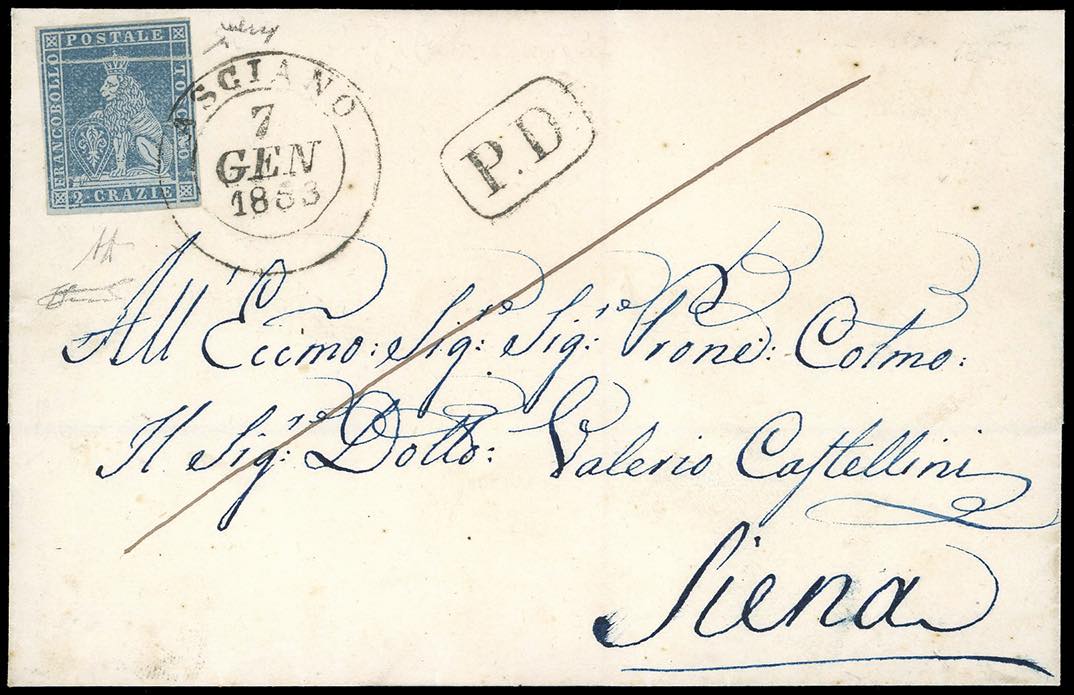 POSTALE
FRANCOBOLLO
TOSCANO
2 CRAZIE
ASCIANO
7
GEN
1853
P.D.
All' Eccmo: Sig:re Sig:re Prone: Colmo:
Il Sig:re Dotto: Valerio Castellini
Siena